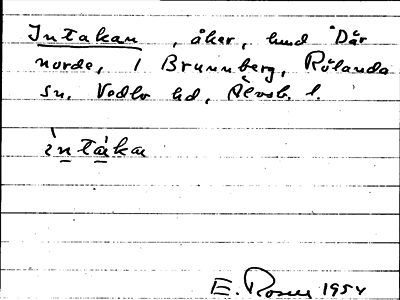 Intakan, åker, hmd Där
norde, 1 Brunnberg, Rölanda
sn. Vedbo hd, Älvsb. l.
ìntákа
E. Rosell 1954